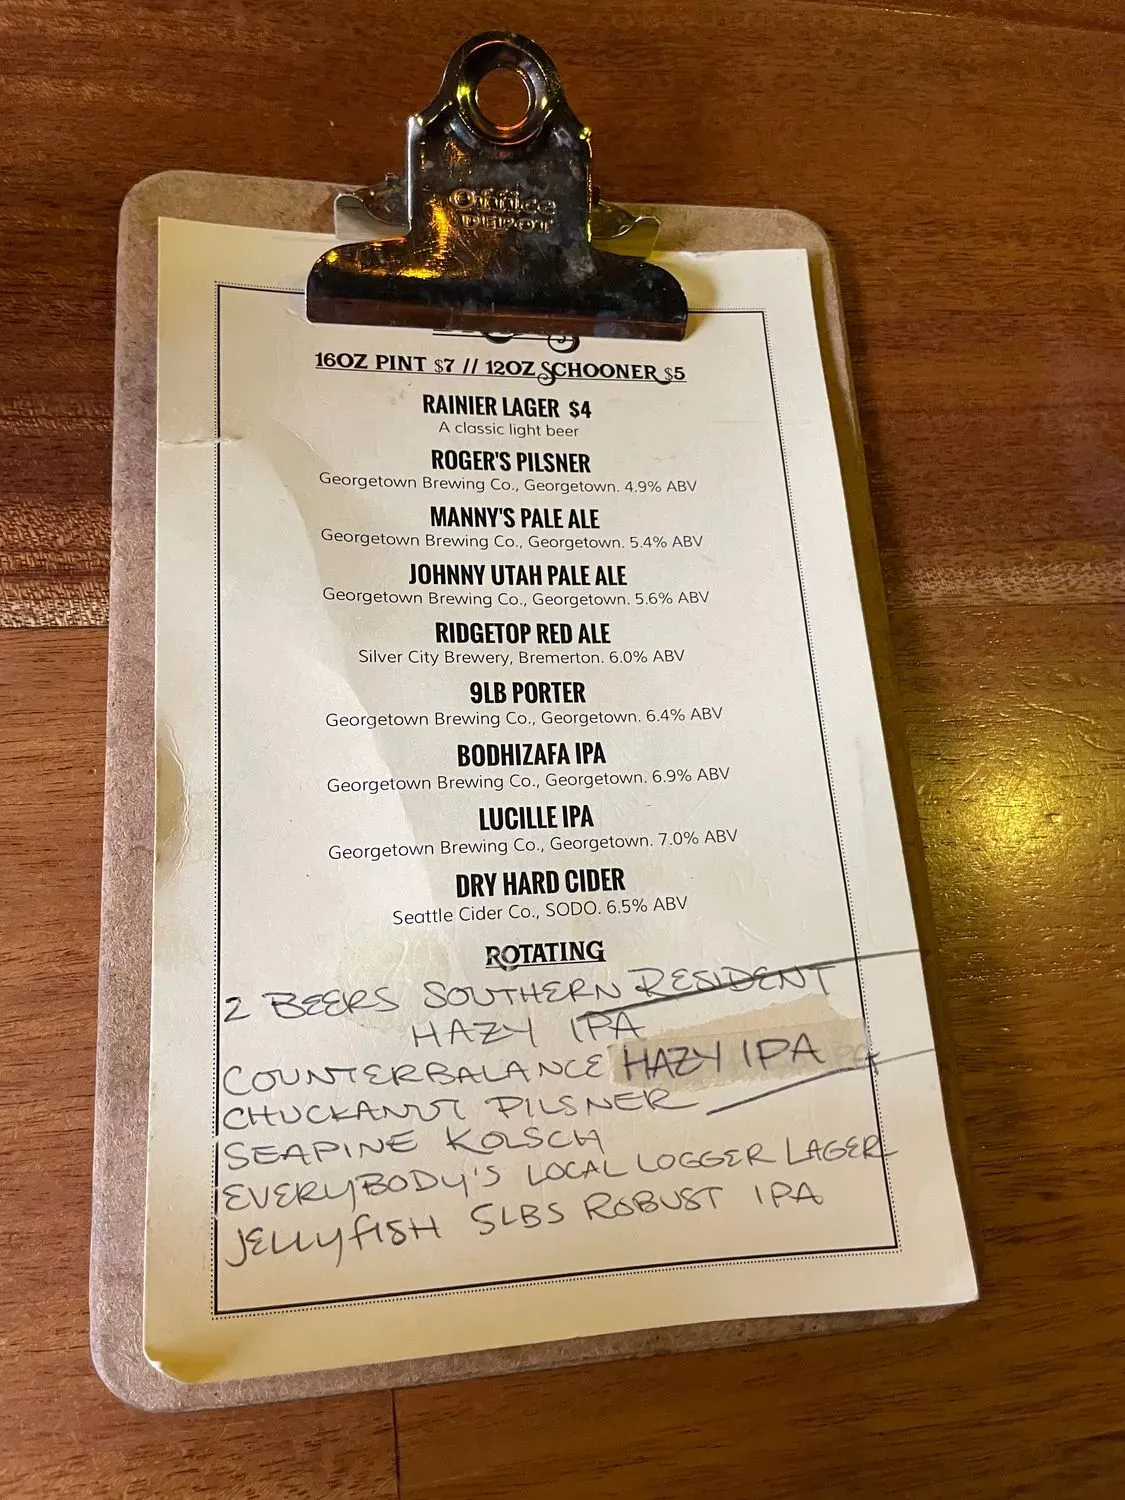 Office
DEPOT
16OZ PINT $7 // 12OZ SCHOONER $5
RAINIER LAGER $4
A classic light beer
ROGER'S PILSNER
Georgetown Brewing Co., Georgetown. 4.9% ABV
MANNY'S PALE ALE
Georgetown Brewing Co., Georgetown. 5.4% ABV
JOHNNY UTAH PALE ALE
Georgetown Brewing Co., Georgetown. 5.6% ABV
RIDGETOP RED ALE
Silver City Brewery, Bremerton. 6.0% ABV
9LB PORTER
Georgetown Brewing Co., Georgetown. 6.4% ABV
BODHIZAFA IPA
Georgetown Brewing Co., Georgetown. 6.9% ABV
LUCILLE IPA
Georgetown Brewing Co., Georgetown. 7.0% ABV
DRY HARD CIDER
Seattle Cider Co., SODO. 6.5% ABV
ROTATING
2 BEERS SOUTHERN RESIDENT
HAZY IPA
COUNTERBALANCE HAZY IPA
CHUCKANUT PILSNER
SEAPINE KOLSCH
EVERYBODY'S LOCAL LOGGER LAGER
JELLYFISH SLBS ROBUST IPA